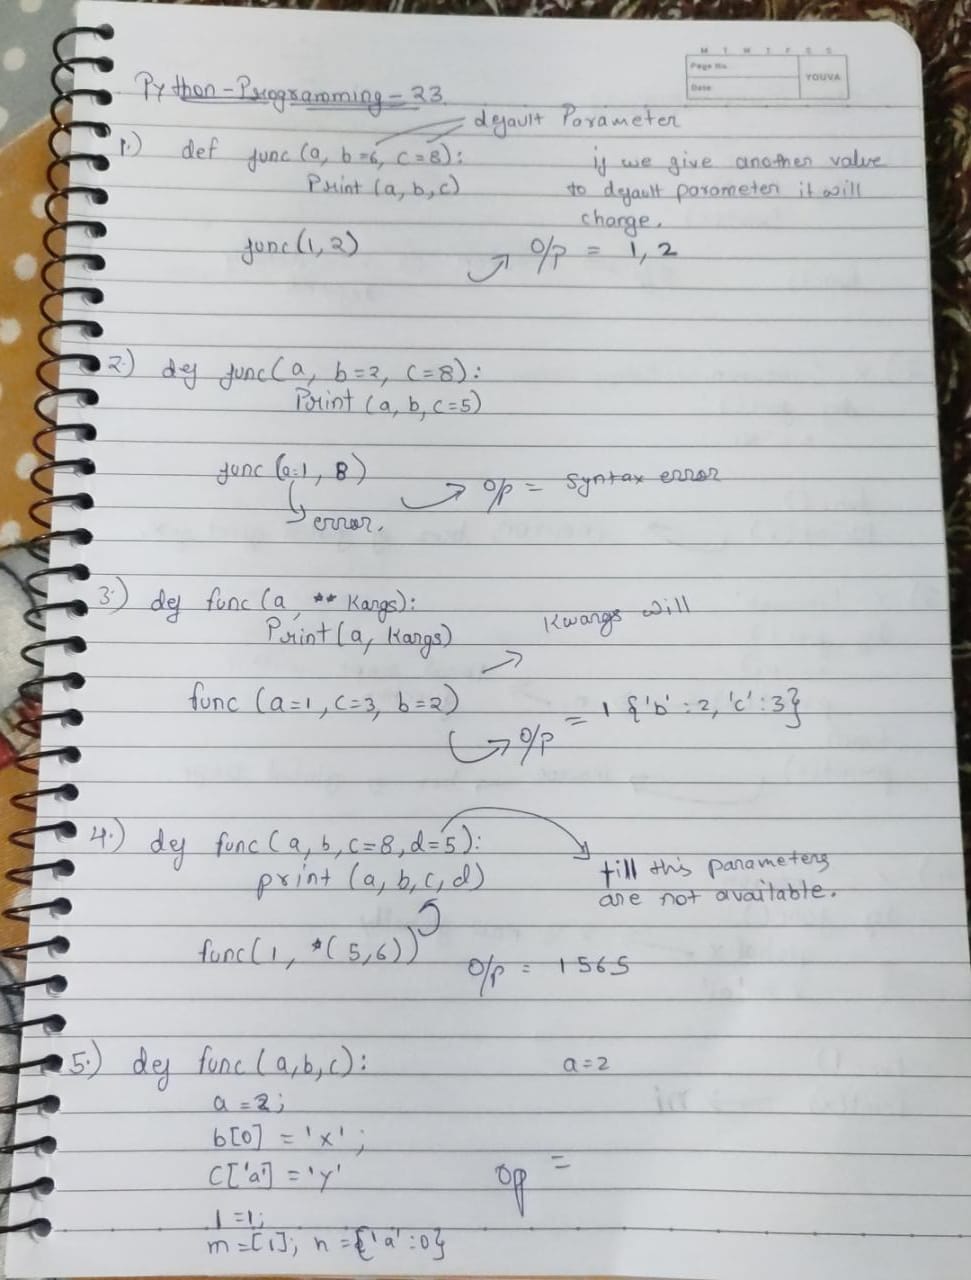 M T W T F S S
Page No.
Date
YOUVA
Python-Programming-23
default Parameter
1.) def func (a, b=6, c=8):
Print (a, b, c)
if we give another value
to default parameter it will
change.
func(1, 2)
O/p = 1, 2
2.) def func(a, b=2, c=8):
Print (a, b, c=5)
func (a=1, 8)
O/p = Syntax error
error.
3.) def func (a, ** Kargs):
Print(a, Kargs)
Kwargs will
func (a=1, c=3, b=2)
O/p = 1 {'b':2, 'c':3}
4.) def func(a, b, c=8, d=5):
print (a, b, c, d)
till this parameters
are not available.
func(1, *(5,6))
O/p = 1565
5.) def func (a,b,c):
a=2
a = 2;
b[0] = 'x';
C['a'] = 'y'
Op =
l=1;
m=[1]; n={'a':0}